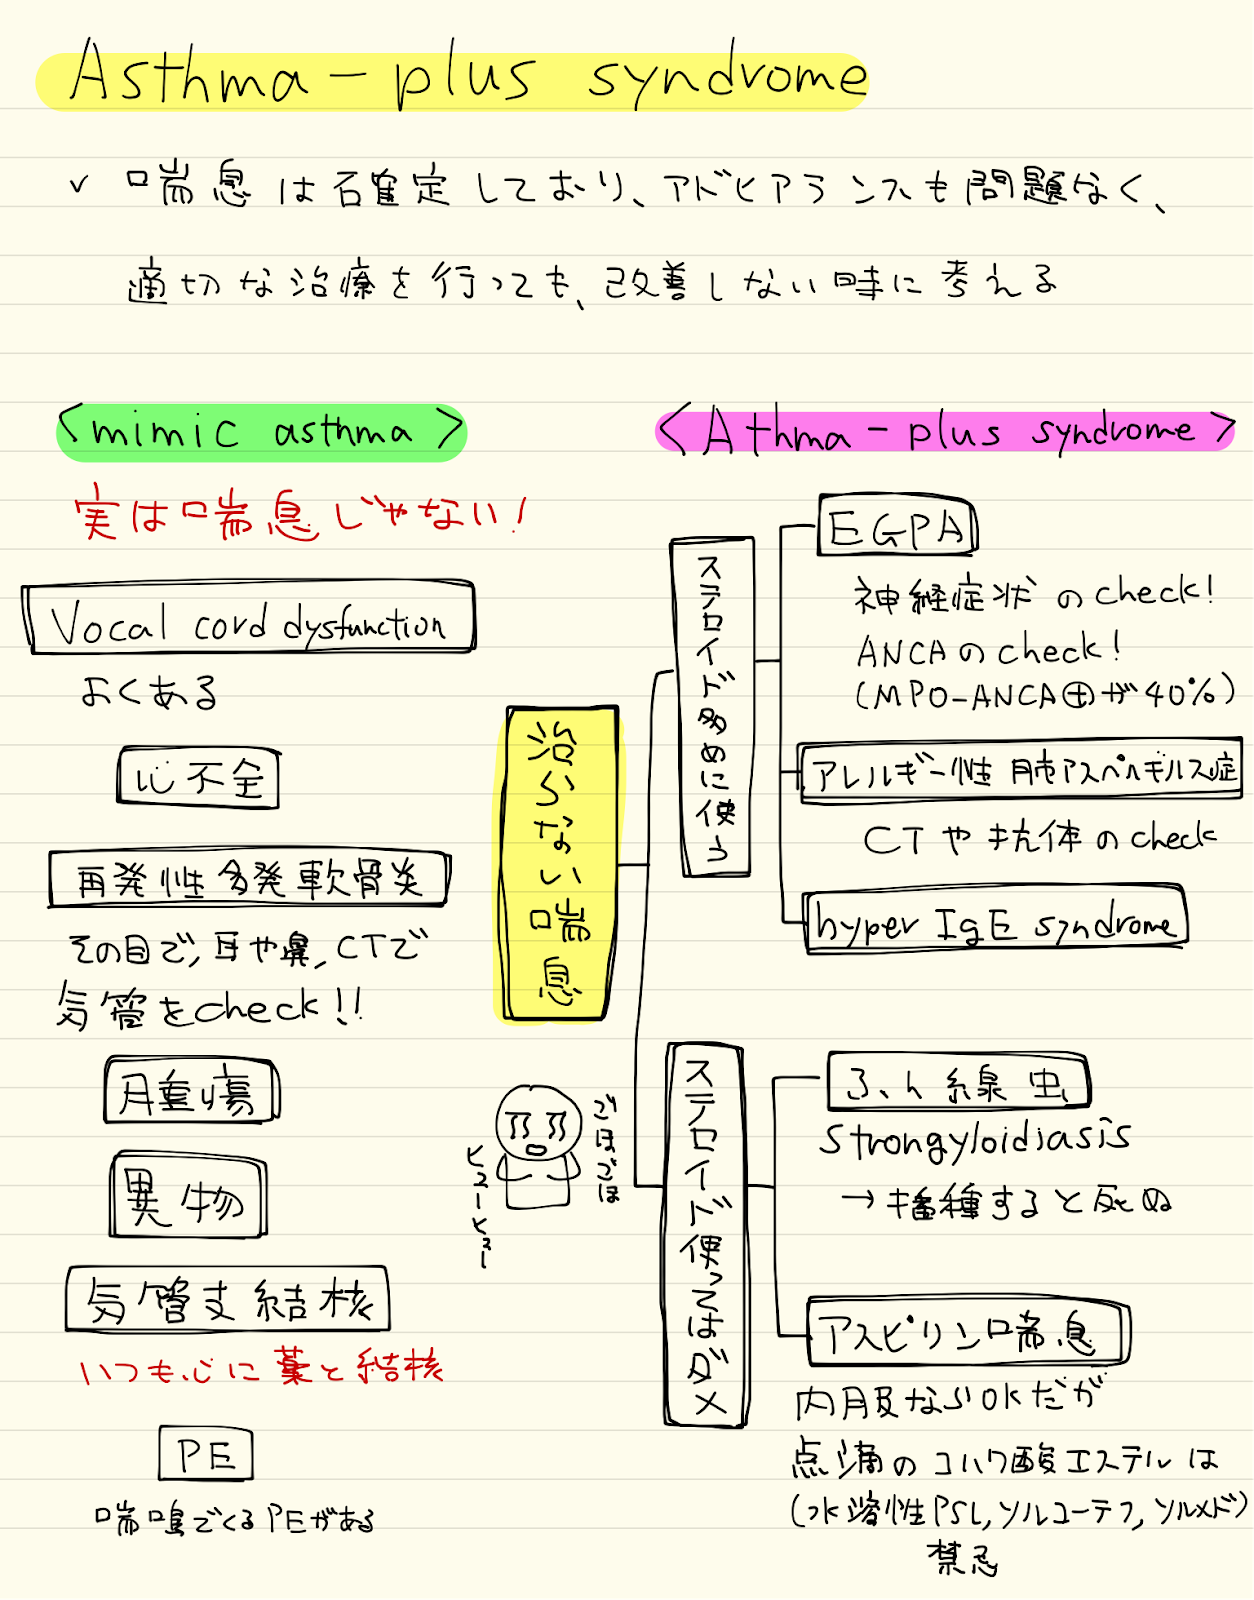 Asthma-plus syndrome
✓ 喘息は確定しており、アドヒアランスも問題なく、
適切な治療を行っても、改善しない時に考える
<mimic asthma>
実は喘息じゃない!
Vocal cord dysfunction
よくある
心不全
再発性多発軟骨炎
その目で,耳や鼻,CTで
気管をcheck!!
腫瘍
異物
気管支結核
いつも心に薬と結核
PE
喘鳴でくるPEがある
治らない喘息
ごほごほ
ヒューヒュー
<Athma-plus syndrome>
ステロイド多めに使う
EGPA
神経症状のcheck!
ANCAのcheck!
(MPO-ANCA⊕が40%)
アレルギー性肺アスペルギルス症
CTや抗体のcheck
hyper IgE syndrome
ステロイド使ってはダメ
ふん線虫
strongyloidiasis
→播種すると死ぬ
アスピリン喘息
内服ならOKだが
点滴のコハク酸エステルは
(水溶性PSL,ソルコーテフ,ソルメド)
禁忌